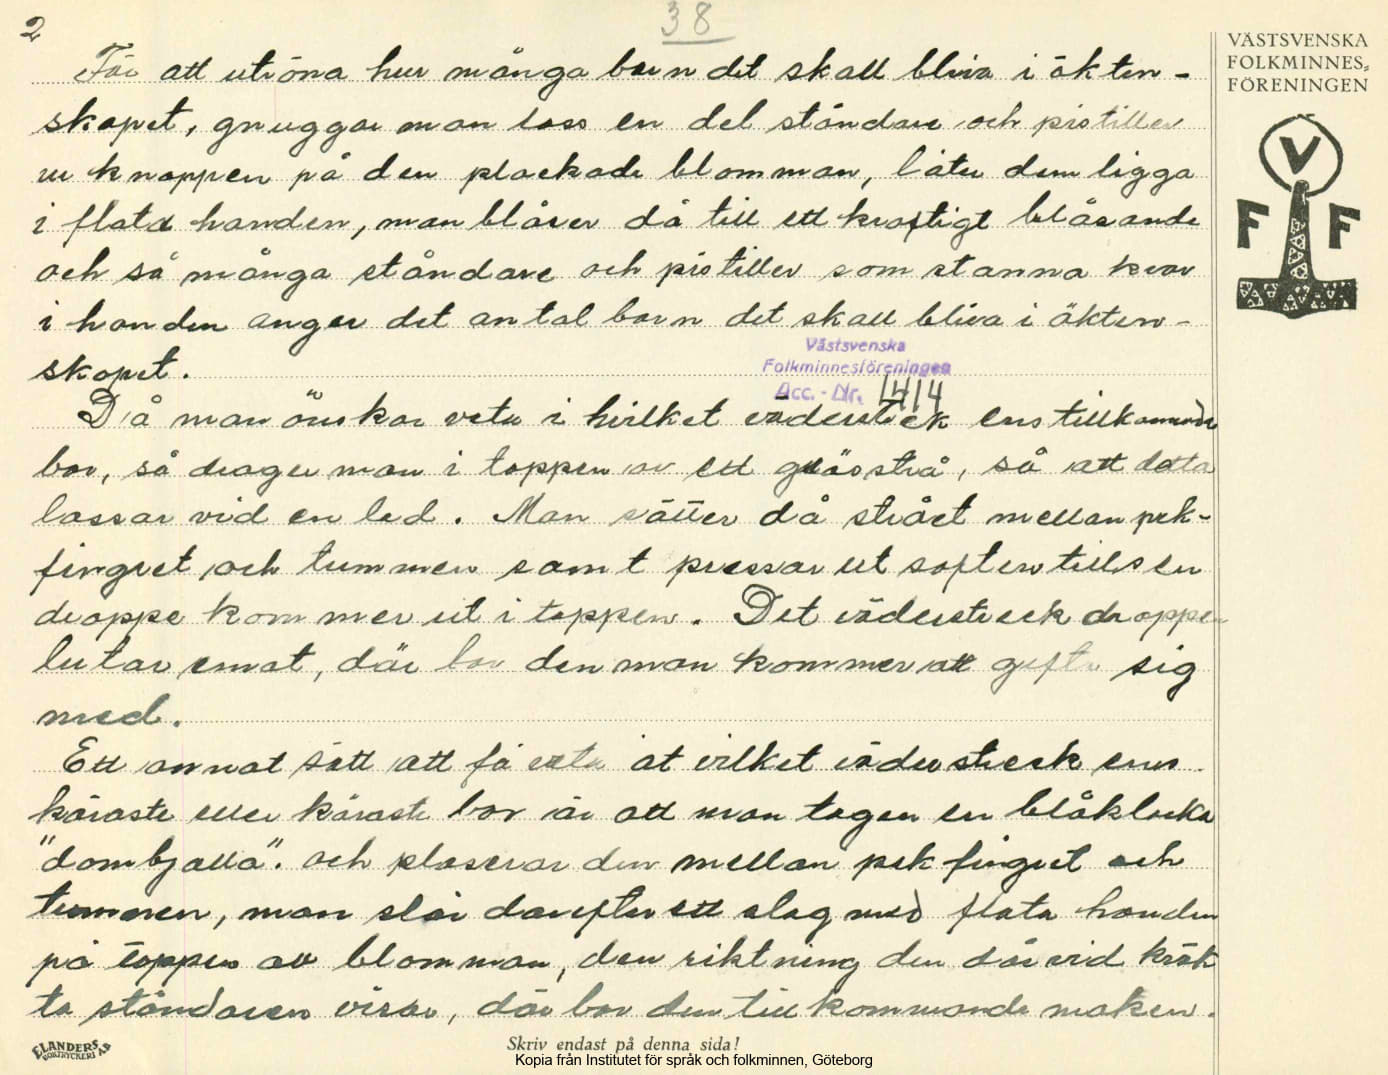 2
38
VÄSTSVENSKA
FOLKMINNES=
FÖRENINGEN
V
F F
För att utröna hur många barn det skall bliva i äkten-
skapet, gnuggar man loss en del ståndare och pistiller
ur knoppen på den plockade blomman, låter dem ligga
i flata handen, man blåser då till ett kraftigt blåsande
och så många ståndare och pistiller som stanna kvar
i handen anger det antal barn det skall bliva i äkten-
skapet.
Västsvenska
Folkminnesföreningen
Acc. - Nr. 1414
Då man önskar veta i hvilket väderstrek ens tillkommande
bor, så drager man i toppen av ett grässtrå, så att detta
lossar vid en led. Man sätter då strået mellan pek-
fingret och tummen samt pressar ut saften tills en
droppe kommer ut i toppen. Det väderstreck droppen
lutar emot, där bor den man kommer att gifta sig
med.
Ett annat sätt att få veta åt vilket väderstreck ens
käraste eller kärasta bor är att man tager en blåklocka
"dombjälla". och plaserar den mellan pekfingret och
tummen, man slår darefter ett slag med flata handen
på toppen av blomman, den riktning den därvid kräk-
ta ståndaren visar, där bor den tillkommande maken.
FLANDERS
BOKTRYCKERI AB
Skriv endast på denna sida!
Kopia från Institutet för språk och folkminnen, Göteborg